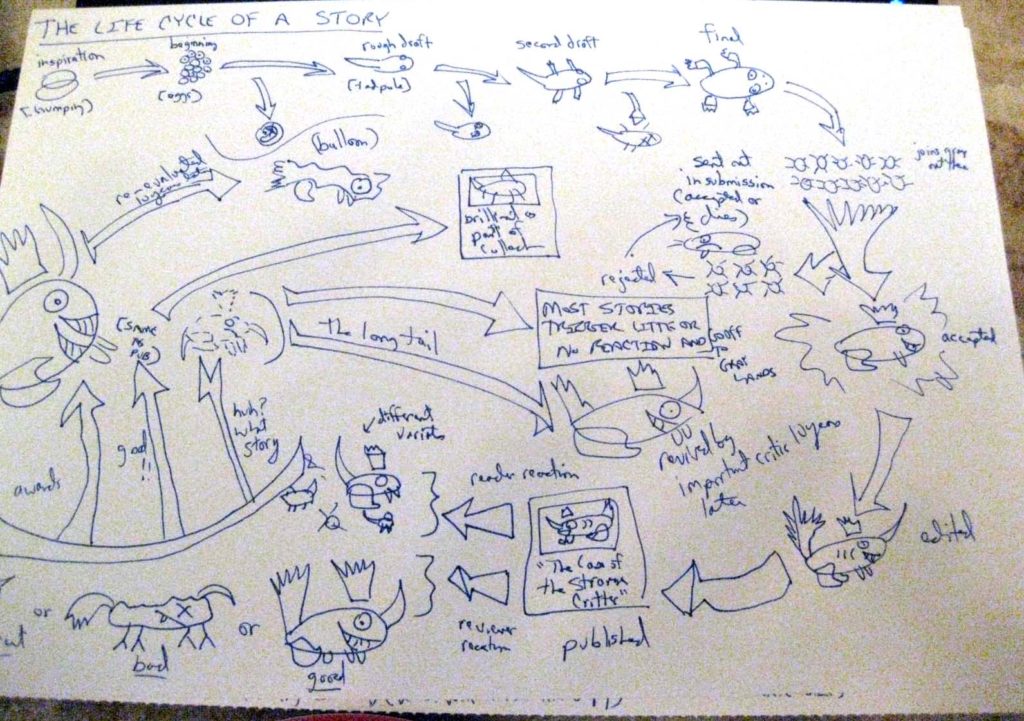 THE LIFE CYCLE OF A STORY
inspiration
(humping)
beginning
(eggs)
rough draft
(tadpole)
second draft
final
joins group
out there
sent out
in submission
(accepted or
dies)
rejected
accepted
edited
published
"The Case of
the Strange
Critter"
reader reaction
reviewer
reaction
different
variants
good
or
bad
or
awards
good!!
huh?
what
story
(same
as
pub)
re-evaluated
10 years later
(balloon)
part of
The long tail
MOST STORIES
TRIGGER LITTLE OR
NO REACTION AND
GO OFF
TO
GRAY
LANDS
revived by
important critic 10 years
later